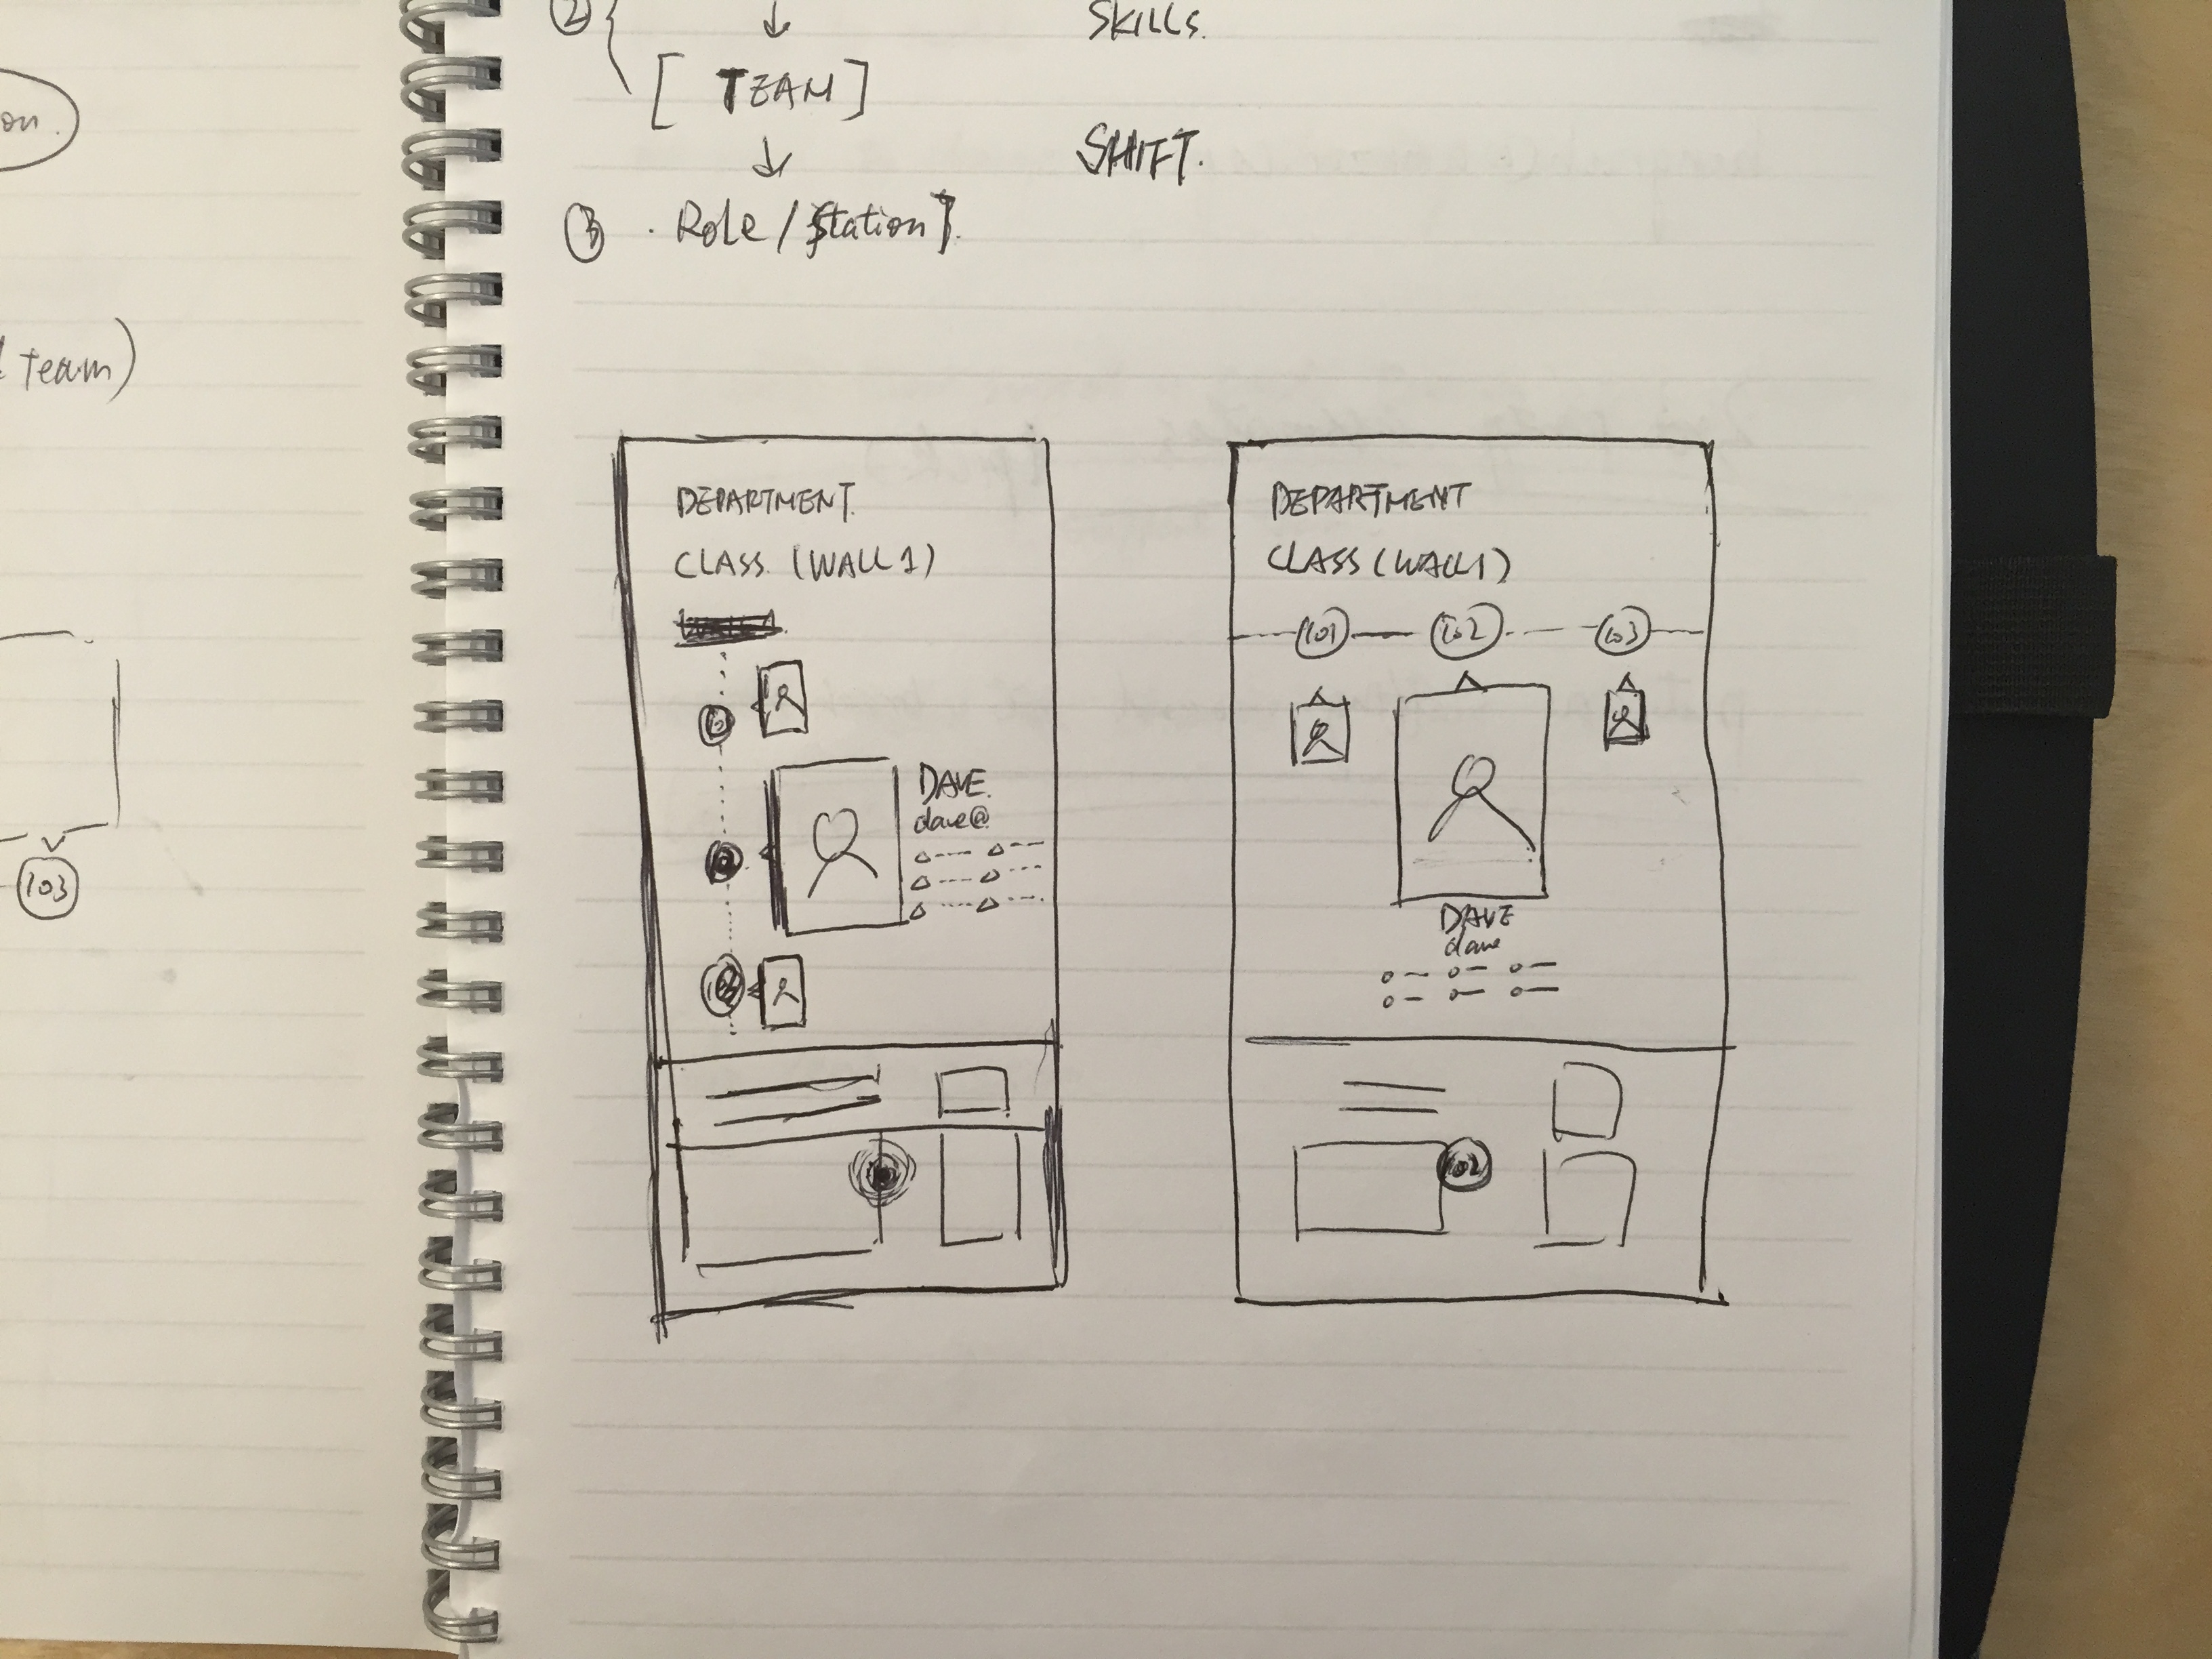 on.
team)
103
2
SKILLS.
[TEAM]
SHIFT.
3 . Role/[Station].
DEPARTMENT.
CLASS. (WALL 1)
DAVE.
dave@
103
DEPARTMENT
CLASS (WALL1)
101 102 103
DAVE
dave
102